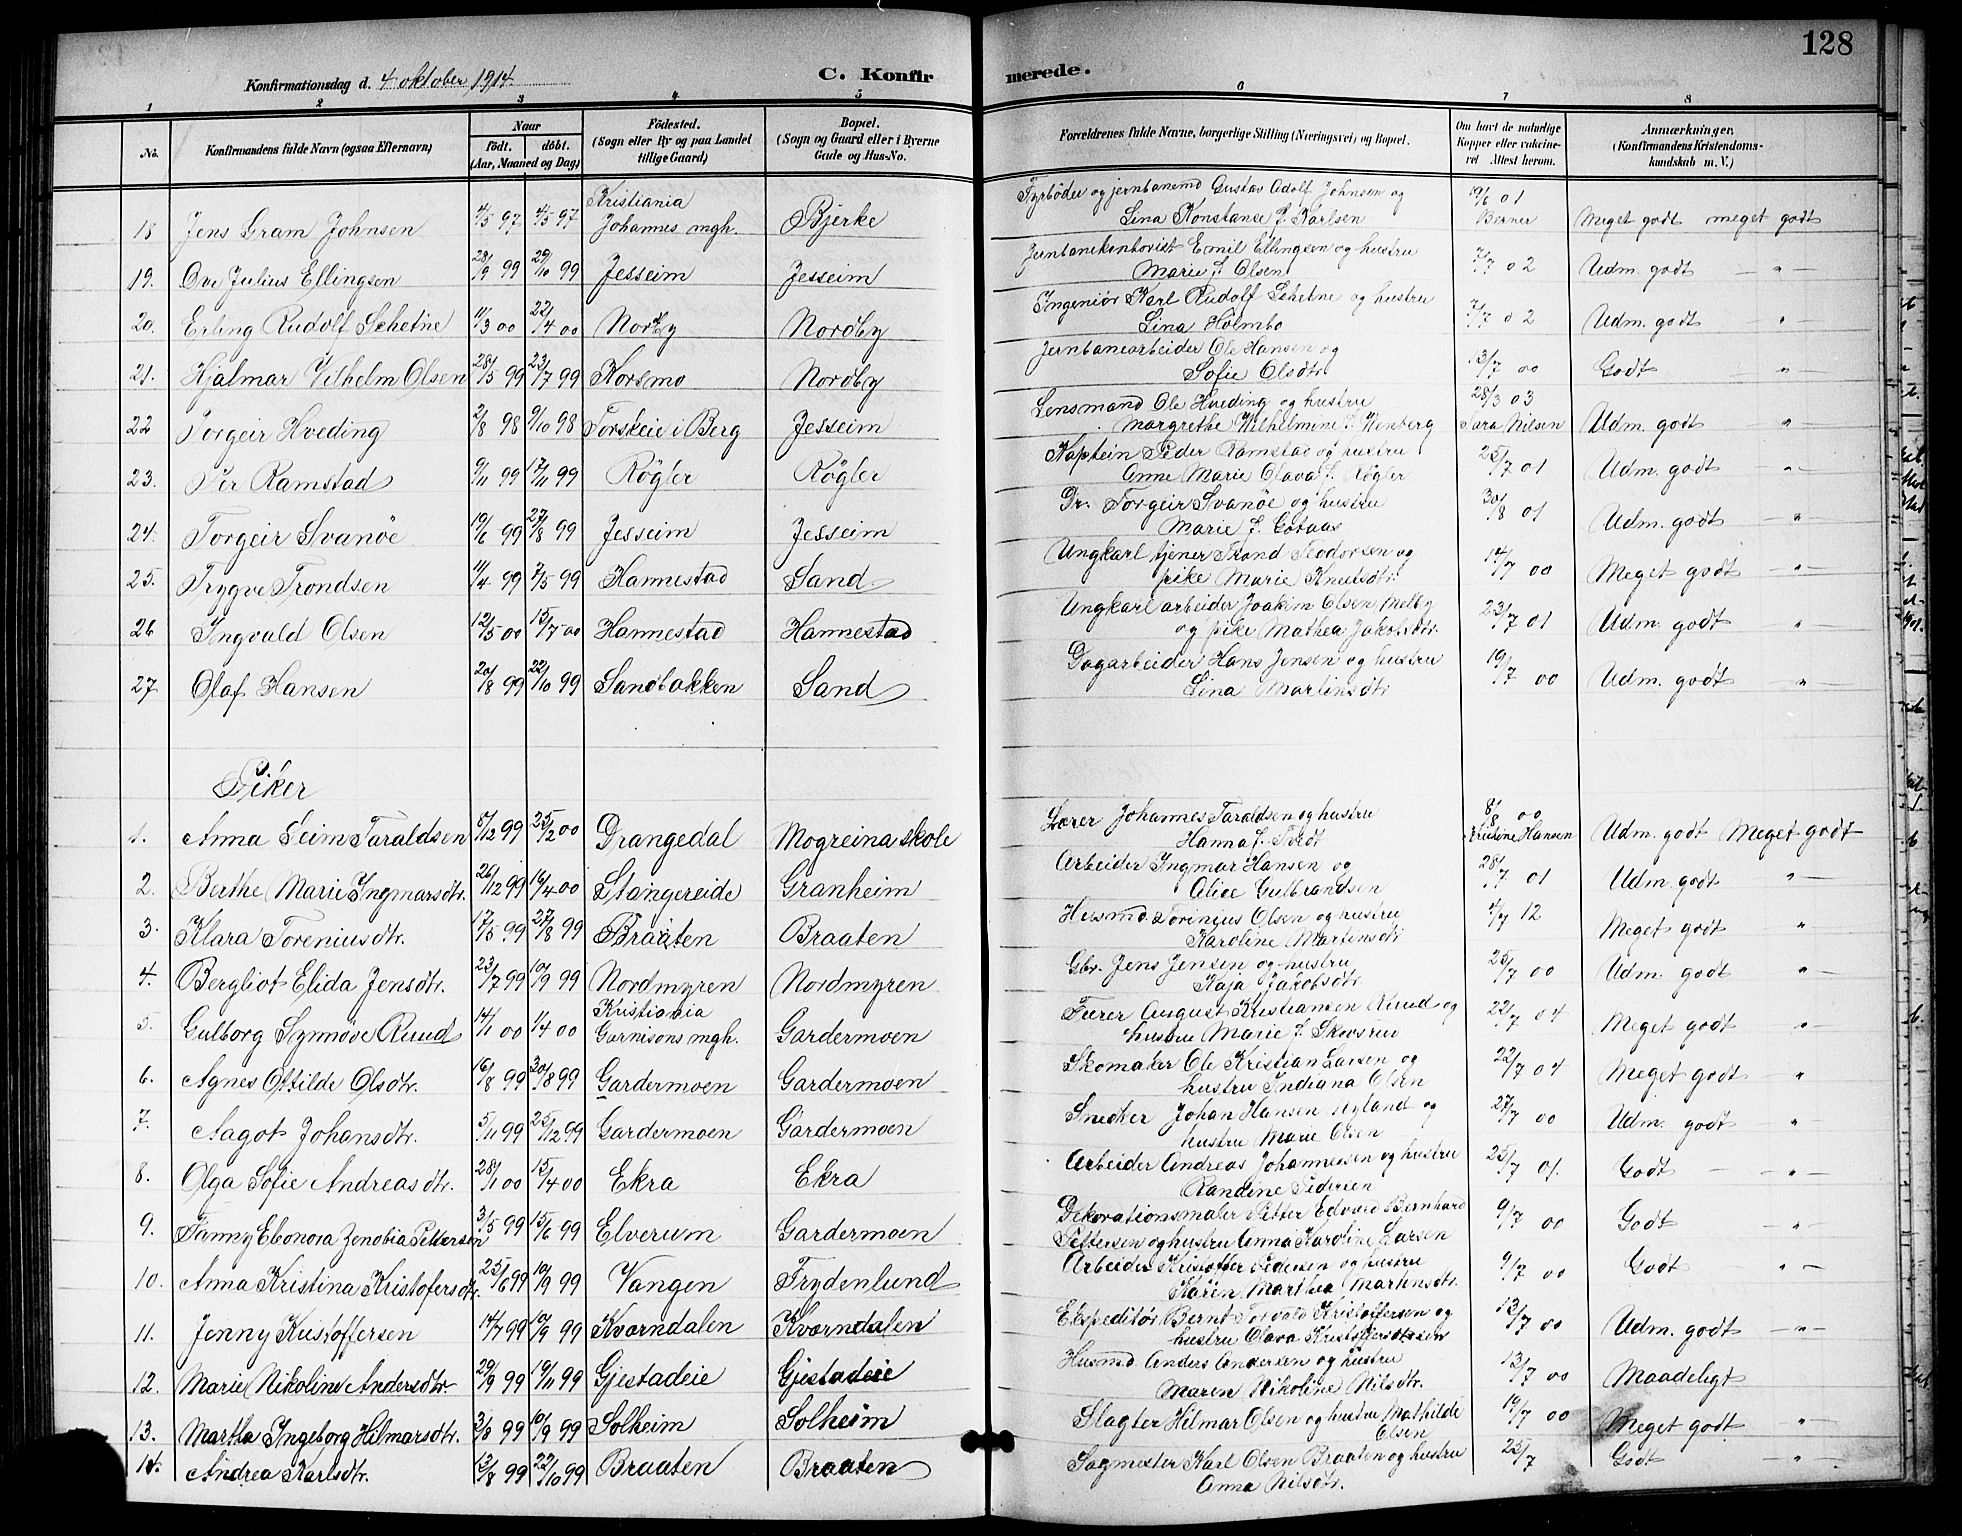 128
Konfirmationsdag d. 4 oktober 1914.
C. Konfirmerede.
1 2 3 4 5 6 7 8
No. Konfirmandens fulde Navn (ogsaa Efternavn) Naar födt. döbt. (Aar, Maaned og Dag) Födested. (Sogn eller By og paa Landet tillige Gaard) Bopæl. (Sogn og Gaard eller i Byerne Gade og Hus-No. Forældrenes fulde Navne, borgerlige Stilling (Næringsvei) og Bopæl. Om havt de naturlige Kopper eller vakcineret Attest herom. Anmærkninger. (Konfirmandens Kristendomskundskab m. V.)
18 Jens Gram Johnsen 4/5 97 4/5 97 Kristiania Johannes mgh. Bjerke Fyrbøder og jernbanemd Gustav Adolf Johnsen og Lina Konstanse f. Karlsen 19/6 01 Berner Meget godt meget godt
19. Ove Julius Ellingsen 28/9 99 29/10 99 Jesseim Jesseim Jernbanekontorist Emil Ellingsen og hustru Marie f. Olsen 7/7 02 Udm. godt — " —
20. Erling Rudolf Schetne 11/3 00 22/4 00 Norby Nordby Ingeniör Karl Rudolf Schetne og hustru Lina Holmbo 7/7 02 Udm. godt "
21. Hjalmar Vilhelm Olsen 28/5 99 23/7 99 Korsmo Nordby Jernbanearbeider Ole Hansen og Sofie Olsdtr. 13/7 00 Godt "
22 Torgeir Hveding 2/8 98 9/10 98 Torskeie i Berg Jesseim Lensmand Ole Hveding og hustru Margrethe Wilhelmine f. Wenberg 28/3 03 Sara Nilsen Udm. godt "
23. Per Ramstad 9/11 99 17/11 99 Røgler Røgler Kaptein Peder Ramstad og hustru Anne Marie Olava f. Røgler 25/7 01 Udm. godt "
24. Torgeir Svanöe 19/6 99 27/8 99 Jesseim Jesseim Dr. Torgeir Svanöe og hustru Marie f. Gotaas 30/8 01 Udm. godt "
25. Trygve Trondsen 11/4 99 7/5 99 Hannestad Sand Ungkarl tjener Trond Teodorsen og pike Marie Knutsdtr. 14/7 00 Meget godt "
26 Ingvald Olsen 12/5 00 15/7 00 Hannestad Hannestad Ungkarl arbeider Joakim Olsen Melby og pike Mathea Jakobsdtr. 23/7 01 Udm. godt "
27 Olaf Hansen 20/8 99 22/10 99 Sandbakken Sand Dagarbeider Hans Jensen og hustru Lina Martinsdtr 19/7 00 Udm. godt "
Piker
1. Anna Seim Taraldsen 8/12 99 25/2 00 Drangedal Mogreina skole Lærer Johannes Taraldsen og hustru Hanna f. Tvedt 8/8 00 Kristine Hansen Udm. godt Meget godt
2. Berthe Marie Ingmarsdtr. 26/12 99 16/4 00 Stangereide Granheim Arbeider Ingmar Hansen og Alice Gulbrandsen 28/7 01 Udm. godt "
3. Klara Toreniusdtr. 17/5 99 27/8 99 Braaten Braaten Husmd. Torenius Olsen og hustru Karoline Martinsdtr 4/7 12 Meget godt "
4. Bergliot Elida Jensdtr. 23/7 99 10/9 99 Nordmyren Nordmyren Gbr. Jens Jensen og hustru Kaja Jakobsdtr 25/7 00 Udm. godt "
5. Gulborg Synnöve Ruud 14/1 00 1/4 00 Kristiania Garnisons mgh. Gardermoen Furer August Kristiansen Ruud og hustru Marie f. Skovsrud 22/7 04 Meget godt "
6. Agnes Otilde Olsdtr. 16/8 99 30/8 99 Gardermoen Gardermoen Skomaker Ole Kristian Larsen og hustru Indiana Olsen 22/7 04 Meget godt "
7. Aagot Johansdtr. 5/11 99 25/12 99 Gardermoen Gardermoen Snedker Johan Hansen Nyland og hustru Marie Olsen 27/7 00 Udm. godt "
8. Olga Sofie Andreasdtr. 28/1 00 15/4 00 Ekra Ekra Arbeider Andreas Johannessen og hustru Randine Pedersen 25/7 01. Godt — " —
9. Fanny Eleonora Zenobia Pettersen 3/5 99 15/6 99 Elverum Gardermoen Dekorationsmaler Petter Edvard Bernhard Pettersen og hustru Anna Karoline Larsen 9/7 00 Godt "
10. Anna Kristina Kristofersdtr 25/6 99 10/9 99 Vangen Frydenlund Arbeider Kristoffer Pedersen og hustru Karen Marthea Martinsdtr. 9/7 00 Godt " —
11. Jenny Kristoffersen 14/7 99 10/9 99 Kværndalen Kværndalen Ekspeditör Bernt Torvald Kristoffersen og hustru Olava 13/7 00 Udm. godt — " —
12. Marie Nikoline Andersdtr 29/9 99 19/11 99 Gjestadeie Gjestadeie Husmd. Anders Andersen og hustru Maren Nikoline Nilsdtr. 13/7 00 Maadeligt
13. Martha Ingeborg Hilmarsdtr. 3/8 99 10/9 99 Solheim Solheim Slagter Hilmar Olsen og hustru Mathilde Olsen 19/7 00 Meget godt "
14. Andrea Karlsdtr. 13/8 99 22/10 99 Braaten Braaten Sagmester Karl Olsen Braaten og hustru Anna Nilsdtr. 25/7 Godt — " —